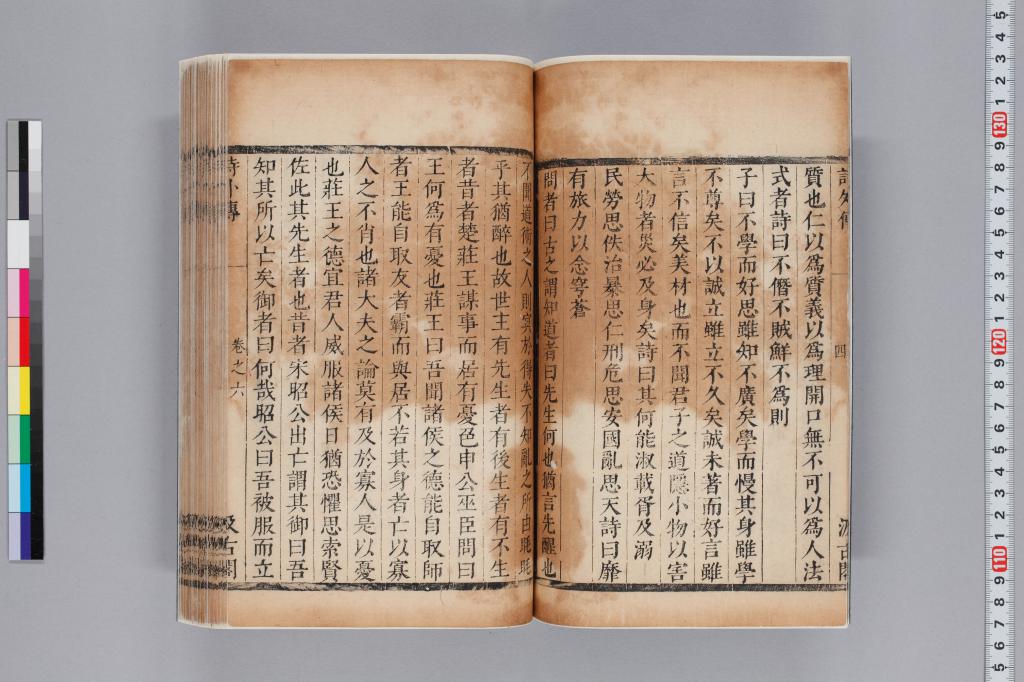 詩外傳
四
汲古閣
質也仁以爲質義以爲理開口無不可以爲人法
式者詩曰不僭不賊鮮不爲則
子曰不學而好思雖知不廣矣學而慢其身雖學
不尊矣不以誠立雖立不久矣誠未著而好言雖
言不信矣美材也而不聞君子之道隱小物以害
大物者災必及身矣詩曰其何能淑載胥及溺
民勞思佚治暴思仁刑危思安國亂思天詩曰靡
有旅力以念穹蒼
問者曰古之謂知道者曰先生何也猶言先醒也
不聞道術之人則冥於得失不知亂之所由眊眊
乎其猶醉也故世主有先生者有後生者有不生
者昔者楚莊王謀事而居有憂色申公巫臣問曰
王何爲有憂也莊王曰吾聞諸侯之德能自取師
者王能自取友者霸而與居不若其身者亡以寡
人之不肖也諸大夫之論莫有及於寡人是以憂
也莊王之德宜君人威服諸侯日猶恐懼思索賢
佐此其先生者也昔者宋昭公出亡謂其御曰吾
知其所以亡矣御者曰何哉昭公曰吾被服而立
詩外傳
卷之六
汲古閣